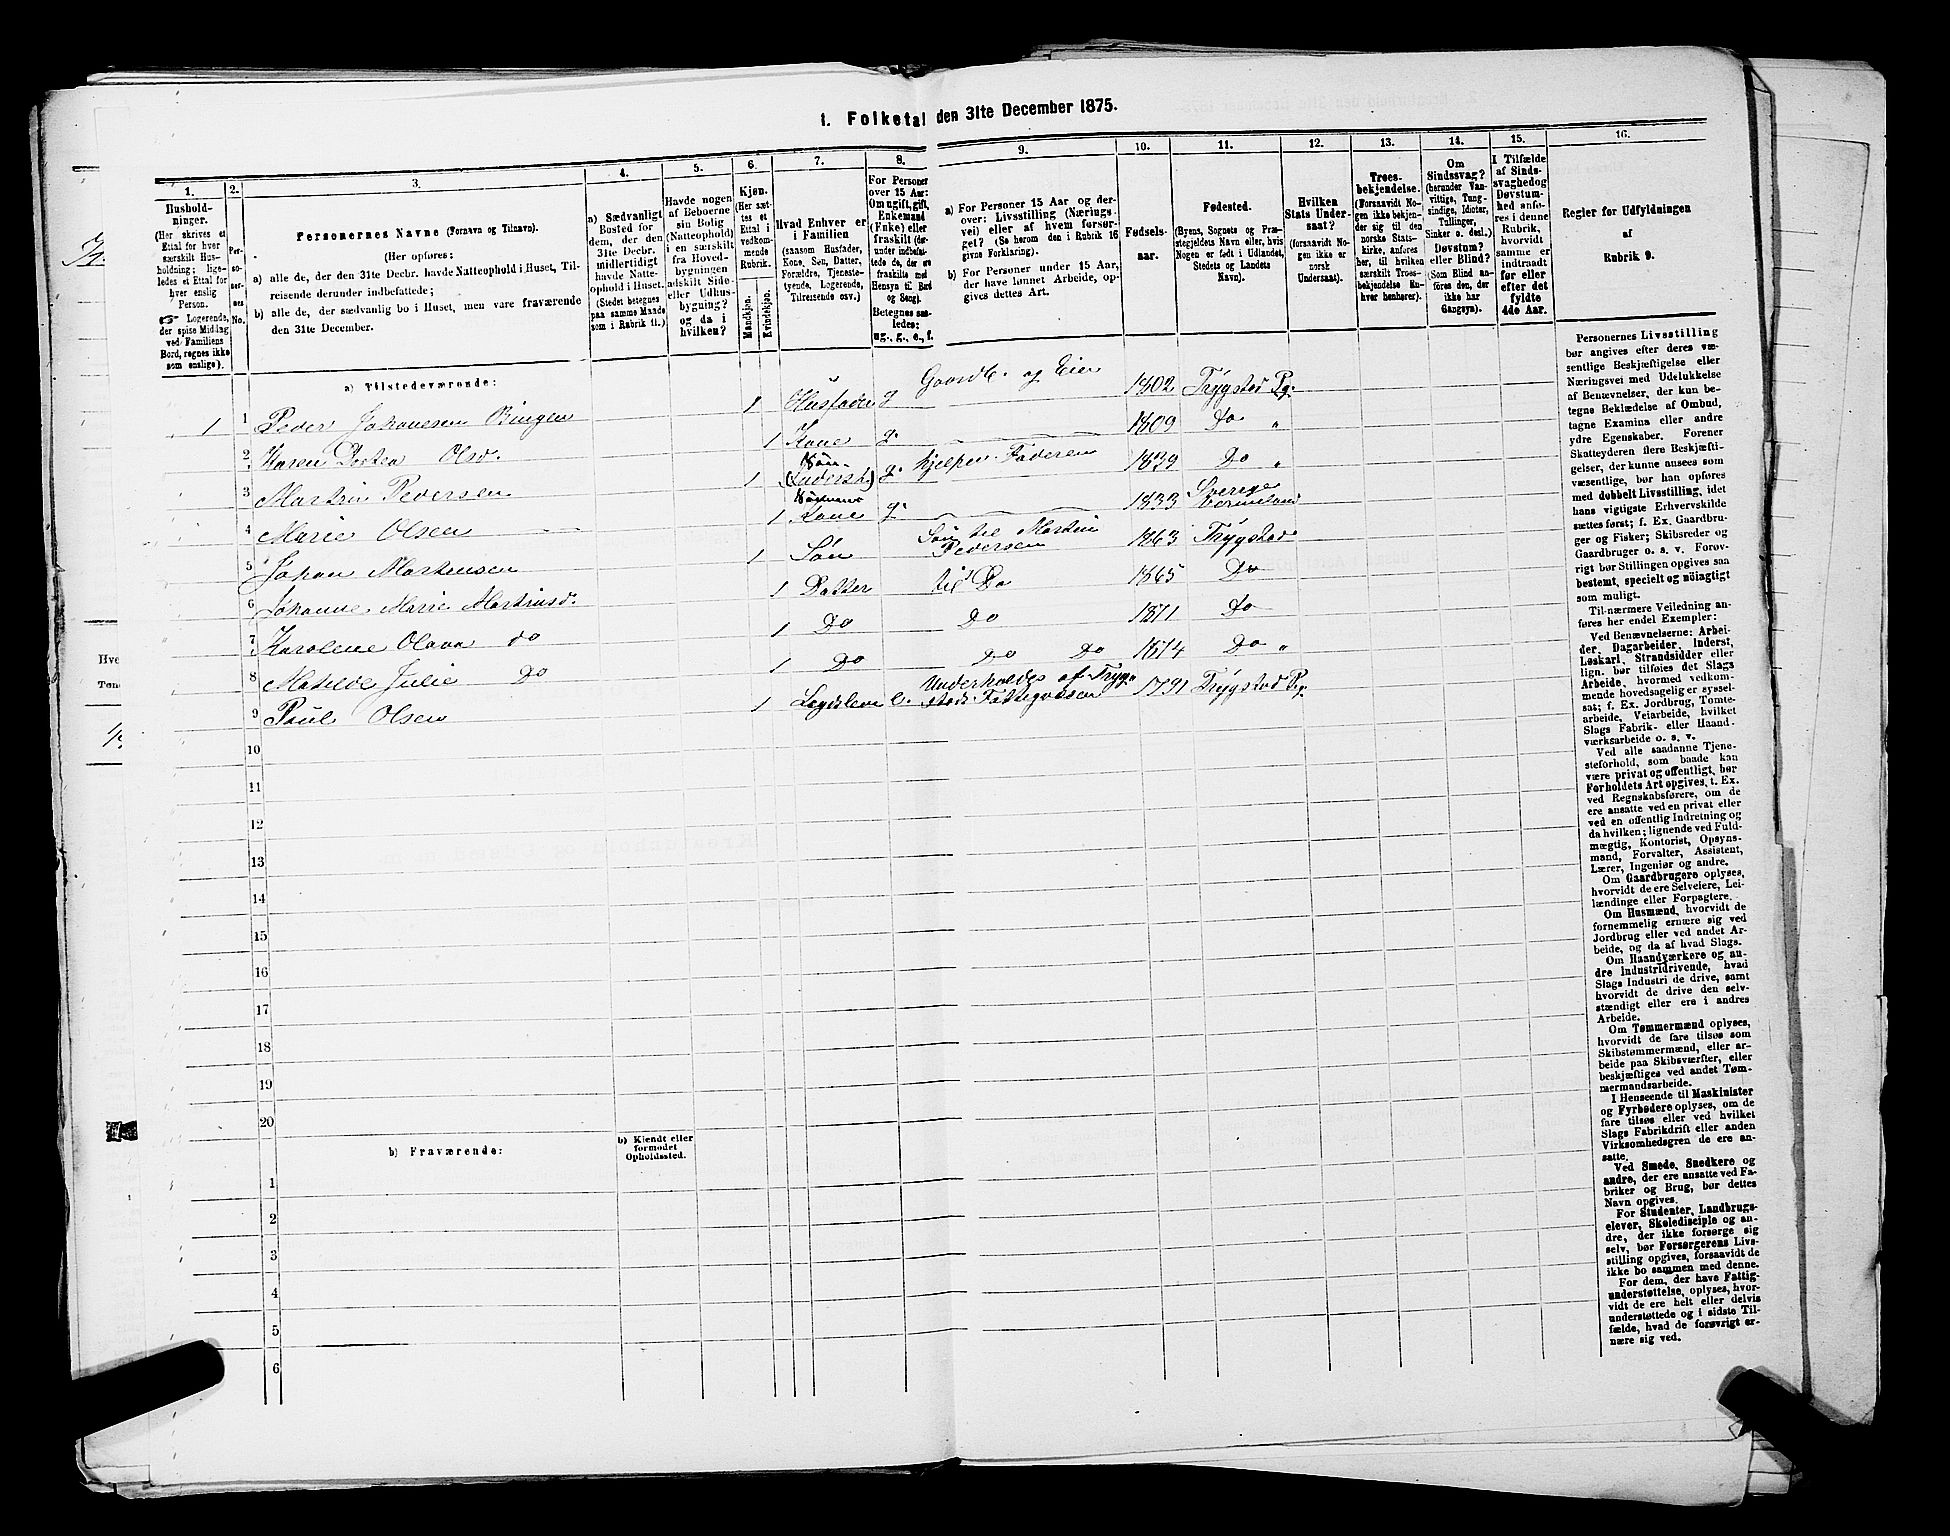 1. Folketal den 31te December 1875.
1. 2. 3. 4. 5. 6. 7. 8. 9. 10. 11. 12. 13. 14. 15. 16.
Hushold-
ninger.
(Her skrives et
Ettal for hver
særskilt Hus-
holdning; lige-
ledes et Ettal for
hver enslig
Person.
☞ Logerende,
der spise Middag
ved Familiens
Bord, regnes ikke
som enslige).
Per-
so-
ner-
nes
No.
Personernes Navne (Fornavn og Tilnavn).
(Her opføres:
a) alle de, der den 31te Decbr. havde Natteophold i Huset, Til-
reisende derunder indbefattede;
b) alle de, der sædvanlig bo i Huset, men vare fraværende
den 31te December.
a) Sædvanligt
Bosted for
dem, der den
31te Decbr.
midlertidigt
havde Natte-
ophold i Huset.
(Stedet betegnes
paa samme Maade
som i Rubrik 11.)
Havde nogen
af Beboerne
sin Bolig
(Natteophold)
i en særskilt
fra Hoved-
bygningen
adskilt Side-
eller Udhus-
bygning?
og da i
hvilken?
Kjøn.
(Her sæt-
tes et
Ettal i
vedkom-
mende
Rubrik.
Mandkjøn.
Kvindekjøn.
Hvad Enhver er
i Familien
(saasom Husfader,
Kone, Søn, Datter,
Forældre, Tjeneste-
tyende, Logerende,
Tilreisende osv.)
For Personer
over 15 Aar:
Om ugift, gift,
Enkemand
(Enke) eller
fraskilt (der-
under indbefat-
tede de, der ere
fraskilte med
Hensyn til Bord
og Seng).
Betegnes saa-
ledes:
ug., g., e., f.
a) For Personer 15 Aar og der-
over: Livsstilling (Nærings-
vei) eller af hvem forsør-
get? (Se herom den i Rubrik 16
givne Forklaring).
b) For Personer under 15 Aar,
der have lønnet Arbeide, op-
gives dettes Art.
Fødsels-
aar.
Fødested.
(Byens, Sognets og Præ-
stegjeldets Navn eller, hvis
Nogen er født i Udlandet,
Stedets og Landets
Navn).
Hvilken
Stats Under-
saat?
(forsaavidt No-
gen ikke er
norsk
Undersaat).
Troes-
bekjendelse.
(Forsaavidt No-
gen ikke bekjen-
der sig til den
norske Stats-
kirke, anføres
her, til hvilken
særskilt Troes-
bekjendelse En-
hver henhører).
Om
Sindssvag?
(herunder Van-
vittige, Tung-
sindige, Idioter,
Tullinger,
Sinker o. desl.)
Døvstum?
eller Blind?
(Som Blind an-
føres den, der
ikke har
Gangsyn).
I Tilfælde
af Sinds-
svaghed og
Døvstum-
hed anfø-
res i denne
Rubrik,
hvorvidt
samme er
indtraadt
før eller
efter det
fyldte
4de Aar.
Regler for Udfyldningen
af
Rubrik 9.
a) Tilstedeværende:
1 1 Peder Johanesen Bingen 1 Husfader g Gaardb. og Eier 1802 Trygstad Pg.
2 Karen Dortea Olsd. 1 Kone g. 1809 Do "
3 Martin Pedersen 1 Søn (Inderst) g. hjelper Faderen 1839 Do "
4 Marie Olsen 1 Sønnens Kone g. 1833 Sverige Vermeland
5 Johan Martensen 1 Søn Søn til Martin Pedersen 1863 Trygstad
6 Johanne Marie Martinsd. 1 Datter til Do 1865 Do
7 Karolene Olava do 1 Do Do 1871 Do
8 Matilde Julie Do 1 Do Do Do 1874 Do "
9 Paul Olsen 1 Lægdslem e. Underholdes af Tryg- stads Fattigvæsen 1791 Trygstad Pg.
10
11
12
13
14
15
16
17
18
19
20
b) Fraværende:
b) Kjendt eller
formodet
Opholdssted.
1
2
3
4
5
6
Personernes Livsstilling
bør angives efter deres væ-
sentlige Beskjæftigelse eller
Næringsvei med Udelukkelse
af Benævnelser, der kun be-
tegne Beklædelse af Ombud,
tagne Examina eller andre
ydre Egenskaber. Forener
Skatteyderen flere Beskjæfti-
gelser, der kunne ansees som
væsentlige, bør han opføres
med dobbelt Livsstilling, idet
hans vigtigste Erhvervskilde
sættes først; f. Ex. Gaardbru-
ger og Fisker; Skibsreder og
Gaardbruger o. s. v. Forøv-
rigt bør Stillingen opgives saa
bestemt, specielt og nøiagtigt
som muligt.
Til nærmere Veiledning an-
føres her endel Exempler:
Ved Benævnelserne: Arbei-
der, Dagarbeider, Inderst,
Løskarl, Strandsidder eller
lign. bør tilføies det Slags
Arbeide, hvormed vedkom-
mende hovedsagelig er syssel-
sat; f. Ex. Jordbrug, Tomte-
arbeide, Veiarbeide, hvilket
Slags Fabrik- eller Haand-
værksarbeide o. s. v.
Ved alle saadanne Tjene-
steforhold, som baade kan
være privat og offentlig, bør
Forholdets Art opgives, t. Ex.
ved Regnskabsførere, om de
ere ansatte ved en privat eller
ved en offentlig Indretning og
da hvilken; lignende ved Fuld-
mægtig, Kontorist, Opsyns-
mand, Forvalter, Assistent,
Lærer, Ingeniør og andre.
Om Gaardbrugere oplyses,
hvorvidt de ere Selveiere, Lei-
lændinge eller Forpagtere.
Om Husmænd, hvorvidt de
fornemmelig ernære sig ved
Jordbrug eller ved andet Ar-
beide, og da af hvad Slags.
Om Haandværkere og an-
dre Industridrivende, hvad
Slags Industri de drive, samt
hvorvidt de drive den selv-
stændigt eller ere i andres
Arbeide.
Om Tømmermænd oplyses,
hvorvidt de fare tilsøs som
Skibstømmermænd, eller ar-
beide paa Skibsværfter, eller
beskjæftiges ved andet Tøm-
mermandsarbeide.
I Henseende til Maskinister
og Fyrbødere oplyses, om de
fare tilsøs eller ved hvilket
Slags Fabrikdrift eller anden
Virksomhedsgren de ere an-
satte.
Ved Smede, Snedkere og
andre, der ere ansatte ved Fa-
briker og Brug, bør dettes
Navn opgives.
For Studenter, Landbrugs-
elever, Skoledisciple og an-
dre, der ikke forsørge sig
selv, bør Forsørgerens Livs-
stilling opgives, forsaavidt de
ikke bo sammen med denne.
For dem, der have Fattig-
understøttelse, oplyses, hvor-
vidt de ere helt eller delvis
understøttede og i sidste Til-
fælde, hvad de forøvrigt er-
nære sig ved.